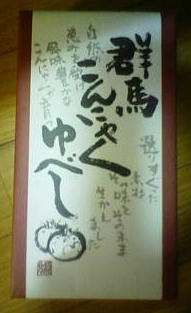 群馬
こんにゃく
ゆべし
選りすぐった
素材
その味をそのまま
生かしました
自然の
恵みを受け
風味豊かな